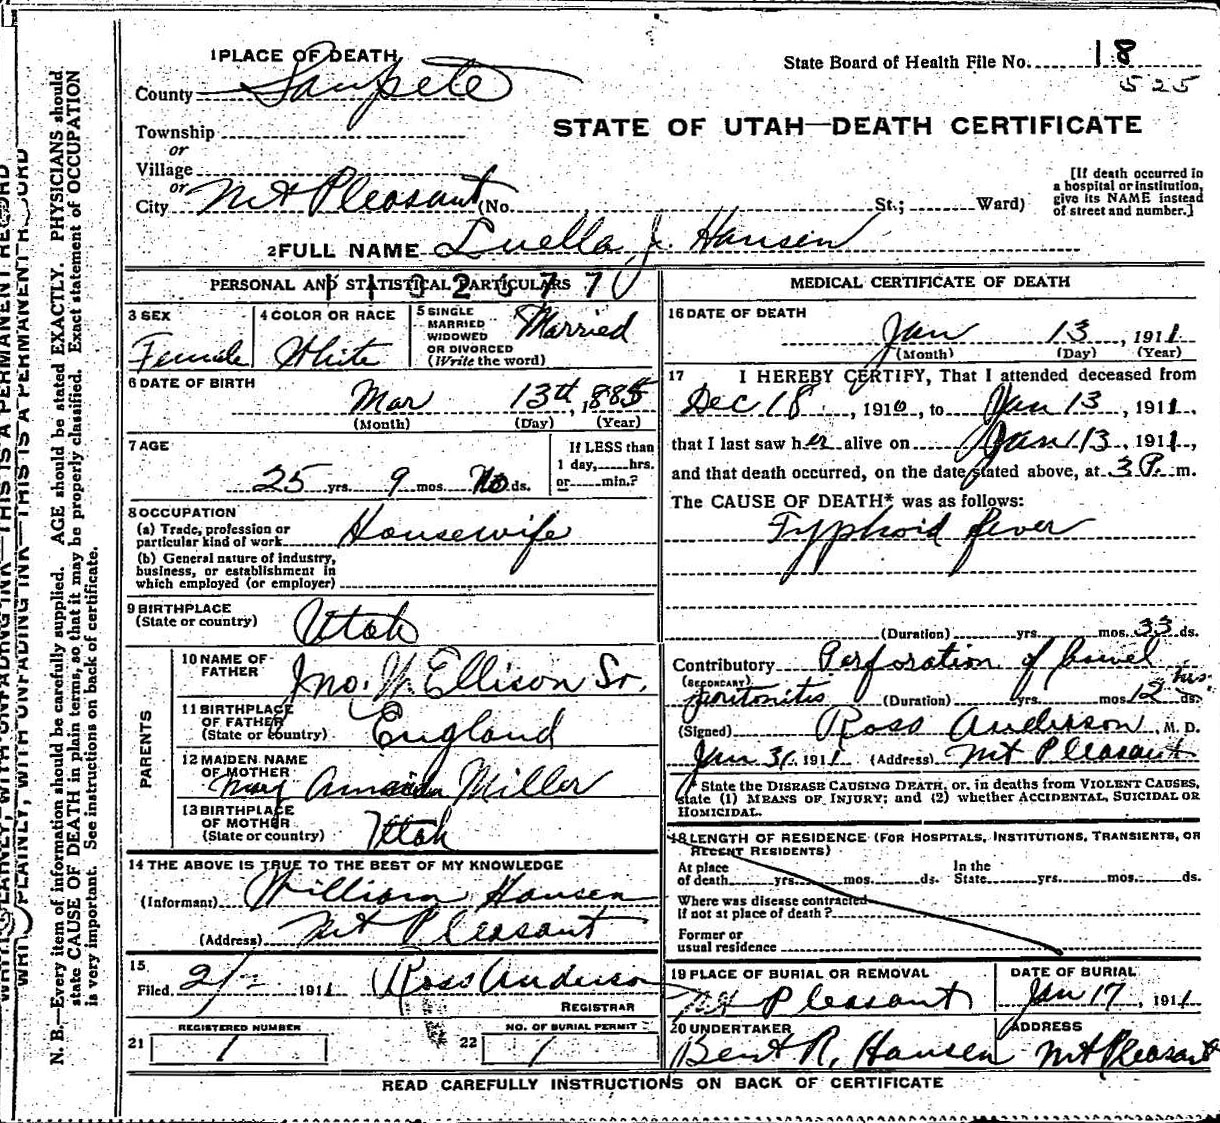 1 PLACE OF DEATH
County Sanpete
Township
or
Village
or
City Mt Pleasant (No. St.; Ward)
State Board of Health File No. 18
525
STATE OF UTAH—DEATH CERTIFICATE
[If death occurred in
a hospital or institution,
give its NAME instead
of street and number.]
2 FULL NAME Luella J. Hansen
PERSONAL AND STATISTICAL PARTICULARS
3 SEX
Female
4 COLOR OR RACE
White
5 SINGLE
MARRIED
WIDOWED
OR DIVORCED
(Write the word)
Married
6 DATE OF BIRTH
Mar 13th, 1885
(Month) (Day) (Year)
7 AGE
25 yrs. 9 mos. No ds.
If LESS than
1 day, hrs.
or min.?
8 OCCUPATION
(a) Trade, profession or
particular kind of work Housewife
(b) General nature of industry,
business, or establishment in
which employed (or employer)
9 BIRTHPLACE
(State or country) Utah
PARENTS
10 NAME OF
FATHER Jno. Ellison Sr.
11 BIRTHPLACE
OF FATHER
(State or country) England
12 MAIDEN NAME
OF MOTHER
Mary Amanda Miller
13 BIRTHPLACE
OF MOTHER
(State or country) Utah
14 THE ABOVE IS TRUE TO THE BEST OF MY KNOWLEDGE
(Informant) William Hansen
(Address) Mt Pleasant
15
Filed 2/ 1911 Ross Anderson
REGISTRAR
21 REGISTERED NUMBER
1
22 NO. OF BURIAL PERMIT
1
MEDICAL CERTIFICATE OF DEATH
16 DATE OF DEATH
Jan 13, 1911
(Month) (Day) (Year)
17 I HEREBY CERTIFY, That I attended deceased from
Dec 18, 1910, to Jan 13, 1911,
that I last saw her alive on Jan 13, 1911,
and that death occurred, on the date stated above, at 3 P. m.
The CAUSE OF DEATH* was as follows:
Typhoid fever
(Duration) yrs. mos. 33 ds.
Contributory Perforation of bowel
(SECONDARY)
peritonitis (Duration) yrs. mos. 12 hrs. ds.
(Signed) Ross Anderson, M. D.
Jan 31 1911 (Address) Mt Pleasant
* State the DISEASE CAUSING DEATH, or, in deaths from VIOLENT CAUSES,
state (1) MEANS OF INJURY; and (2) whether ACCIDENTAL, SUICIDAL OR
HOMICIDAL.
18 LENGTH OF RESIDENCE (FOR HOSPITALS, INSTITUTIONS, TRANSIENTS, OR
RECENT RESIDENTS)
At place
of death yrs. mos. ds.
In the
State yrs. mos. ds.
Where was disease contracted
if not at place of death?
Former or
usual residence
19 PLACE OF BURIAL OR REMOVAL
Mt Pleasant
DATE OF BURIAL
Jan 17, 1911
20 UNDERTAKER
Bent R, Hansen
ADDRESS
Mt Pleasant
READ CAREFULLY INSTRUCTIONS ON BACK OF CERTIFICATE
WRITE PLAINLY, WITH UNFADING INK—THIS IS A PERMANENT RECORD
N. B.—Every item of information should be carefully supplied. AGE should be stated EXACTLY. PHYSICIANS should
state CAUSE OF DEATH in plain terms, so that it may be properly classified. Exact statement of OCCUPATION
is very important. See instructions on back of certificate.